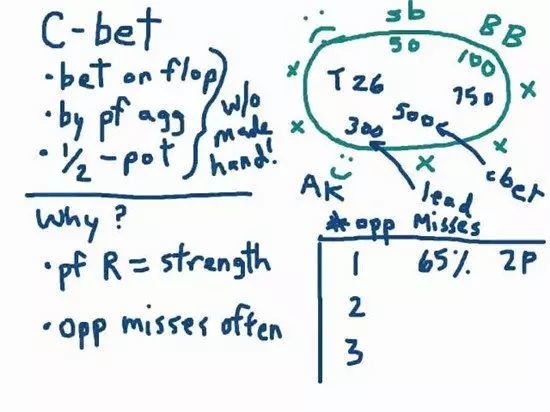 C-bet
• bet on flop
• by pf agg
• 1/2 - pot
w/o
made
hand!
Why?
• pf R = strength
• opp misses often
sb
BB
50
100
T 2 6
750
500
300
x
x
x
x
x
AK
lead
cbet
* opp Misses
1 65% 2P
2
3